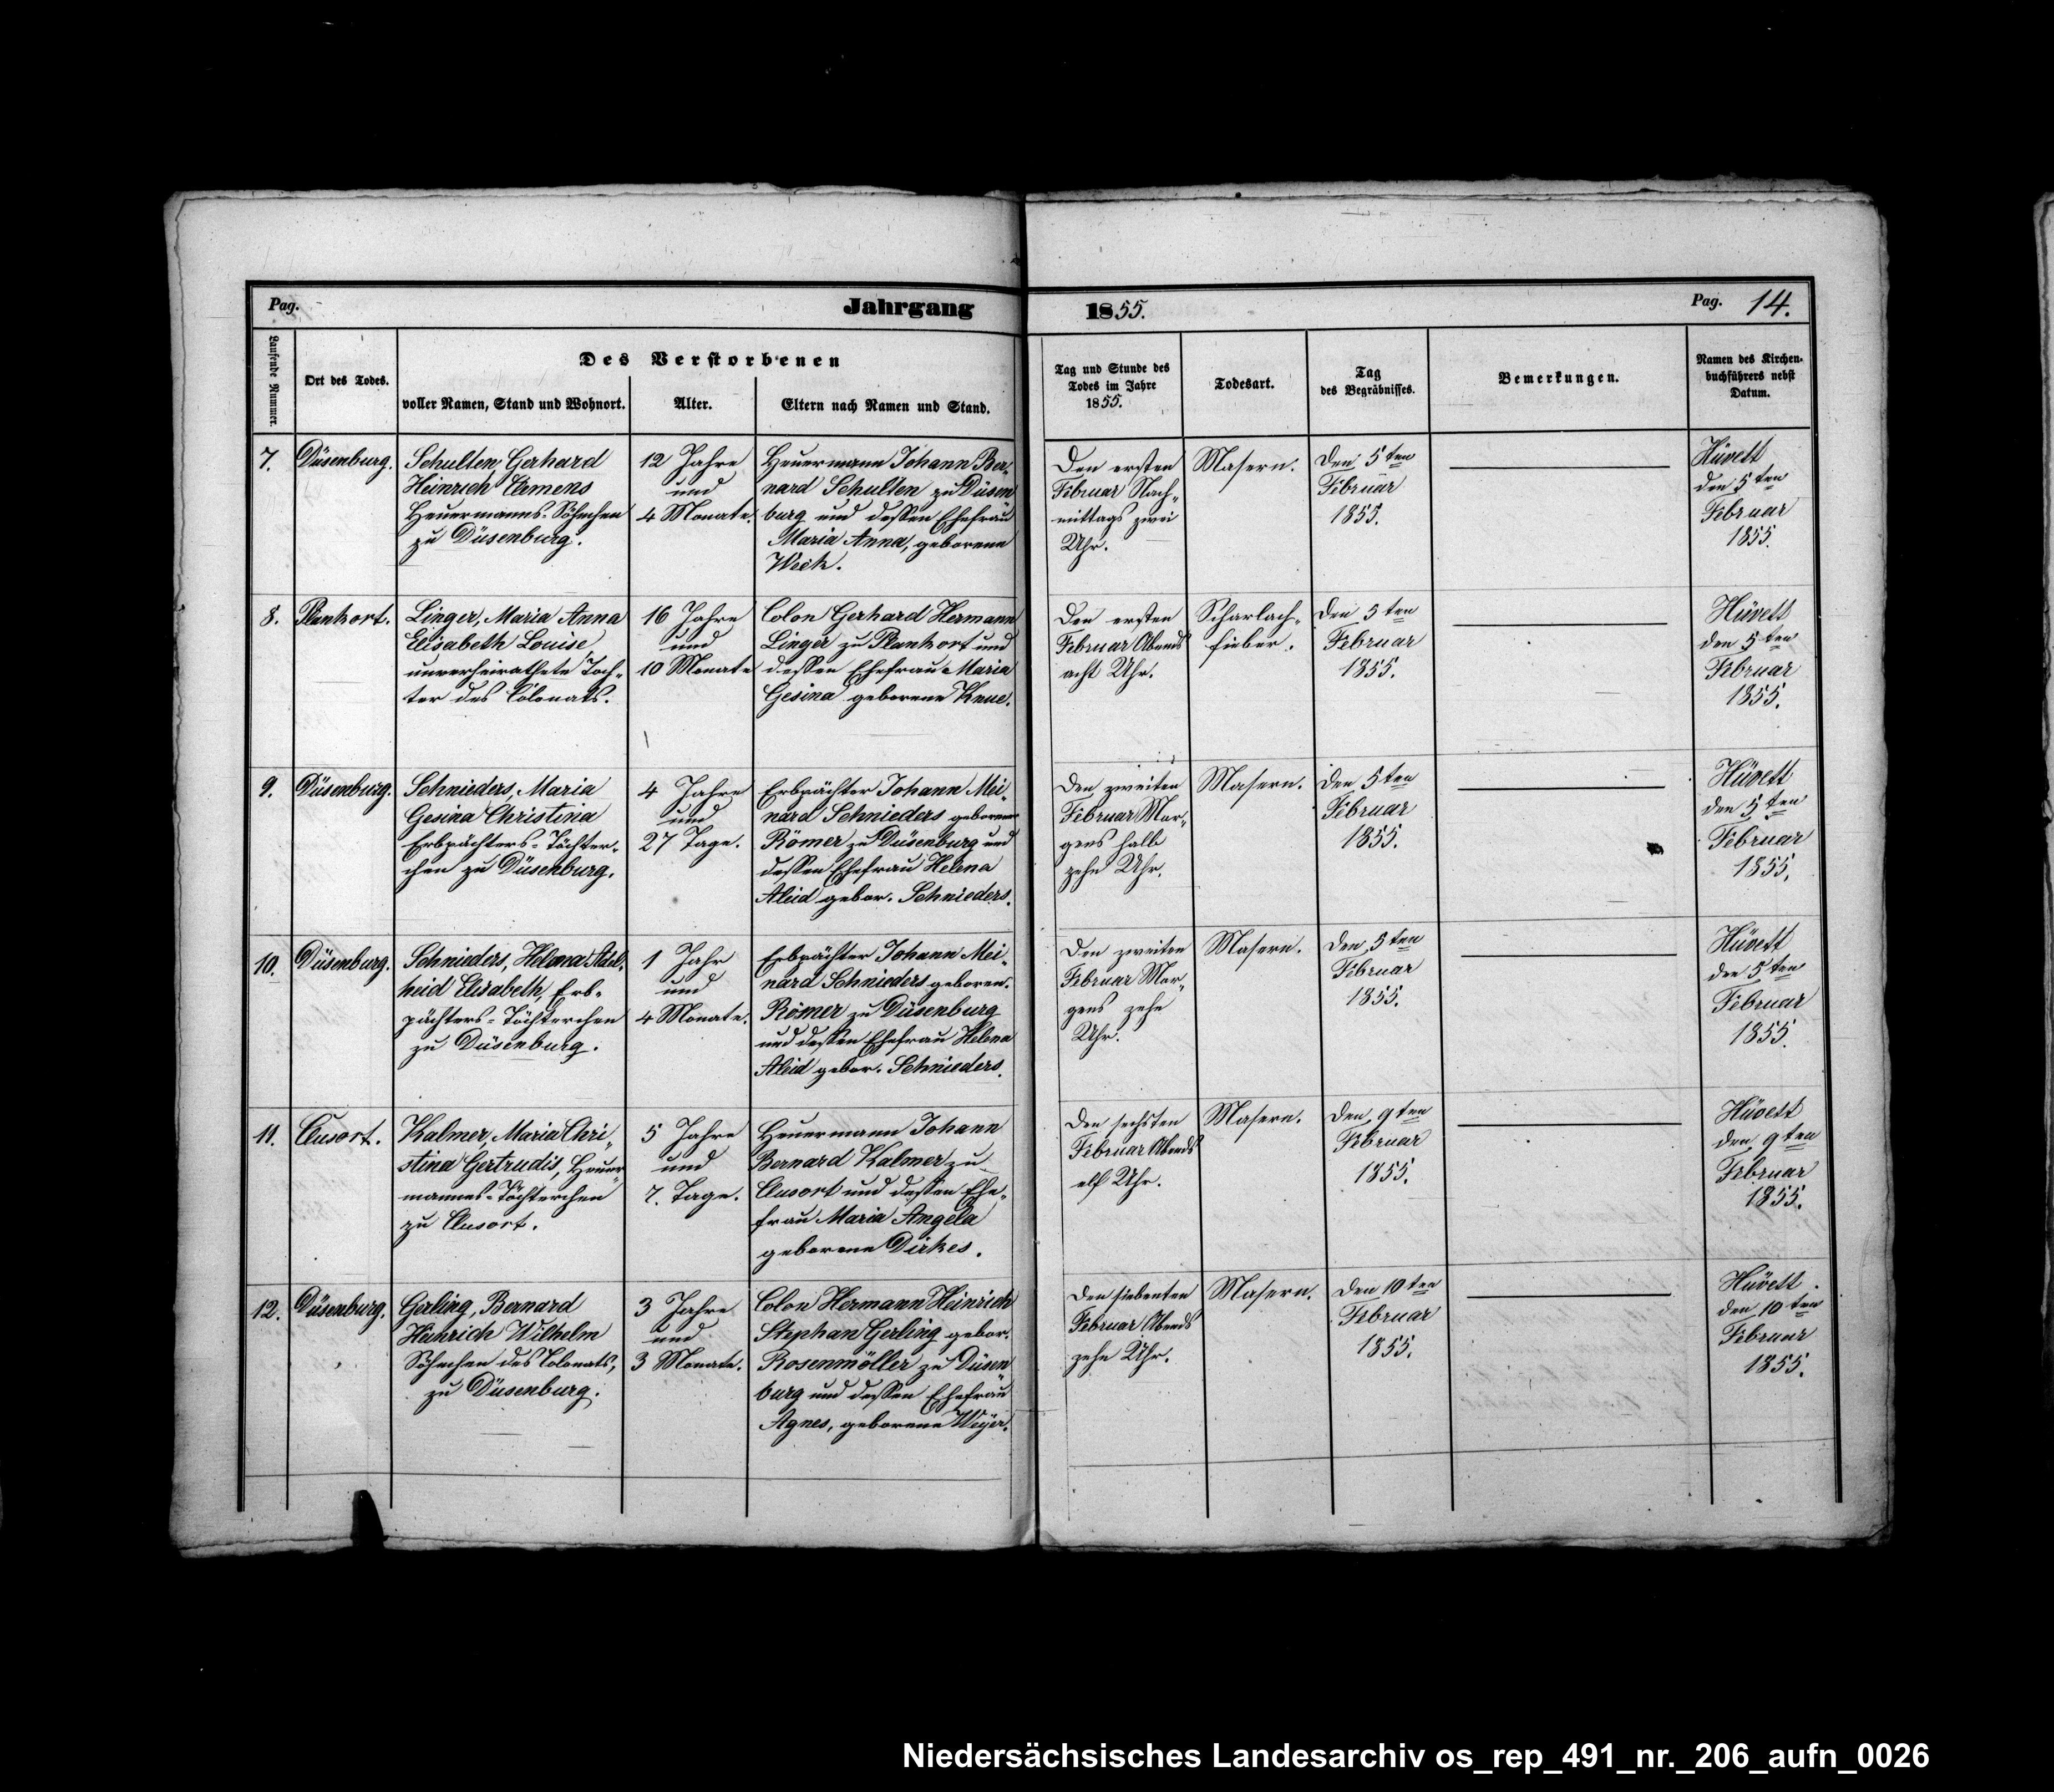 Pag.
Jahrgang 1855.
Pag. 14.
Laufende Nummer.
Ort des Todes.
Des Verstorbenen
voller Namen, Stand und Wohnort.
Alter.
Eltern nach Namen und Stand.
Tag und Stunde des
Todes im Jahre
1855.
Todesart.
Tag
des Begräbnisses.
Bemerkungen.
Namen des Kirchen-
buchführers nebst
Datum.
7.
Düsenburg.
Schulten, Gerhard
Heinrich Clemens
Heuermanns-Söhnchen
zu Düsenburg.
12 Jahre
und
4 Monate.
Heuermann Johann Ber-
nard Schulten zu Düsen
burg und dessen Ehefrau
Maria Anna, geborene
Den ersten
Februar Nach-
mittags zwei
Uhr.
Masern.
Den 5ten
Februar
1855.
Hüvett
den 5ten
Februar
1855.
8.
Plankort.
Linger, Maria Anna
Elisabeth Louise,
unverheirathete Toch-
ter des Colonats.
16 Jahre
und
10 Monate
Colon Gerhard Hermann
Linger zu Plankort und
dessen Ehefrau Maria
Gesina geborene Knue.
Den ersten
Februar Abends
acht Uhr.
Scharlach-
fieber.
Den 5ten
Februar
1855.
Hüvett
den 5ten
Februar
1855.
9.
Düsenburg.
Schnieders, Maria
Gesina Christina
Erbpächters-Töchter-
chen zu Düsenburg.
4 Jahre
und
27 Tage.
Erbpächter Johann Mei-
nard Schnieders geborener
Römer zu Düsenburg und
dessen Ehefrau Helena
Aleid gebor. Schnieders.
Den zweiten
Februar Mor-
gens halb
zehn Uhr.
Masern.
Den 5ten
Februar
1855.
Hüvett
den 5ten
Februar
1855.
10.
Düsenburg.
Schnieders, Helena Adel-
heid Elisabeth, Erb-
pächters-Töchterchen
zu Düsenburg.
1 Jahr
und
4 Monate.
Erbpächter Johann Mei-
nard Schnieders geboren.
Römer zu Düsenburg
und dessen Ehefrau Helena
Aleid gebor. Schnieders.
Den zweiten
Februar Mor-
gens zehn
Uhr.
Masern.
Den 5ten
Februar
1855.
Hüvett
den 5ten
Februar
1855.
11.
Clusort.
Kalmer, Maria Chri-
stina Gertrudis, Heuer-
mannes-Töchterchen
zu Clusort.
5 Jahre
und
7. Tage.
Heuermann Johann
Bernard Kalmer zu
Clusort und dessen Ehe-
frau Maria Angela
geborene Dirkes.
Den sechsten
Februar Abends
elf Uhr.
Masern.
Den 9ten
Februar
1855.
Hüvett
den 9ten
Februar
1855.
12.
Düsenburg.
Gerling, Bernard
Heinrich Wilhelm
Söhnchen des Colonats,
zu Düsenburg.
3 Jahre
und
3 Monate.
Colon Hermann Heinrich
Stephan Gerling gebor.
Rosenmöller zu Düsen
burg und dessen Ehefrau
Agnes, geborene Weyer.
Den siebenten
Februar Abends
zehn Uhr.
Masern.
Den 10ten
Februar
1855.
Hüvett
den 10ten
Februar
1855.
Niedersächsisches Landesarchiv os_rep_491_nr._206_aufn_0026